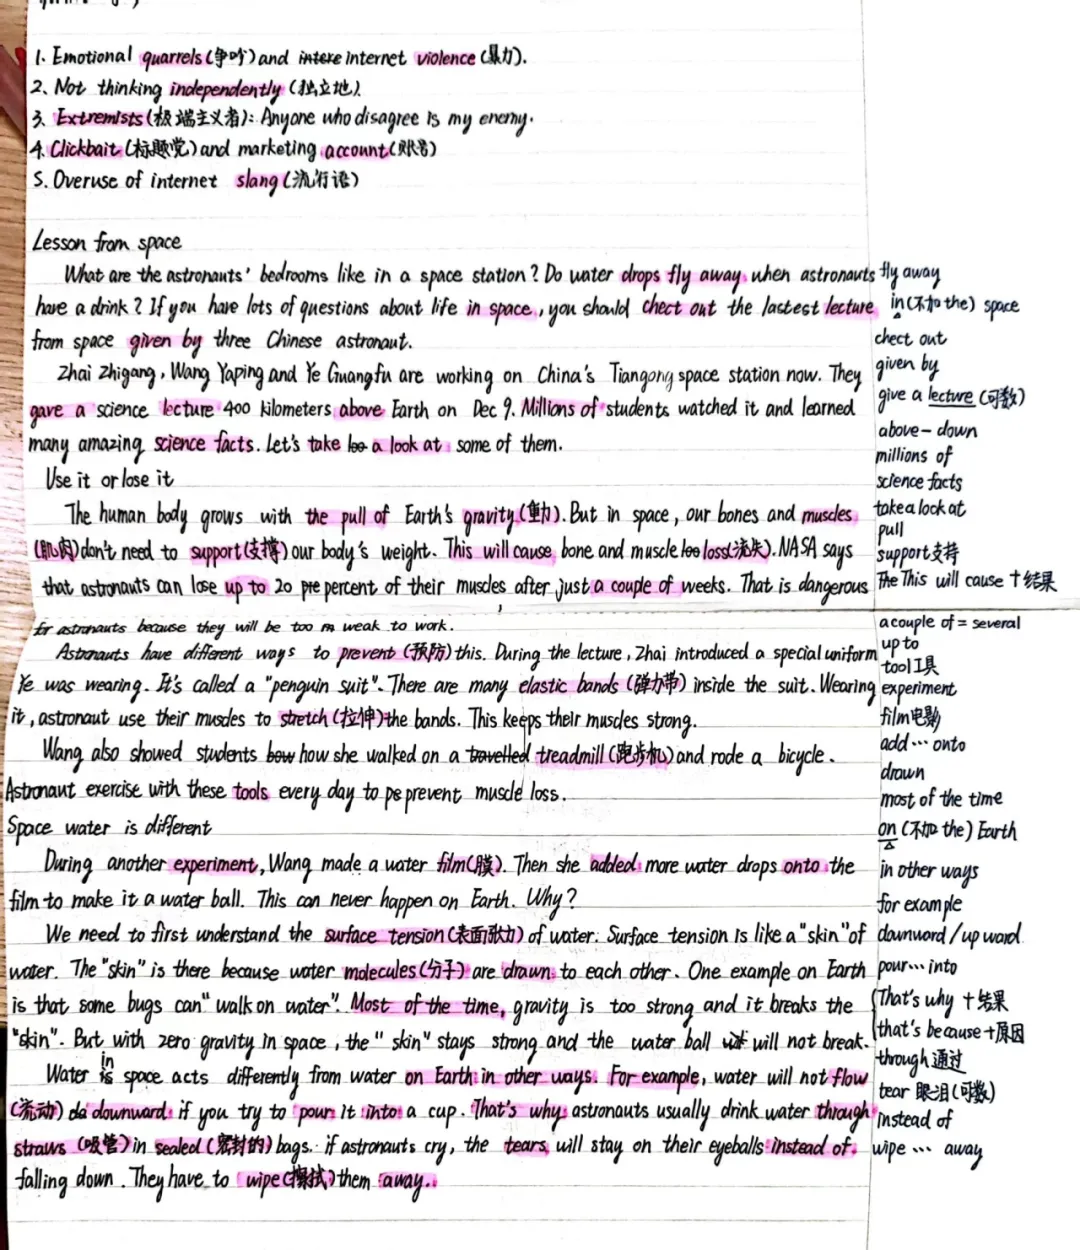 1. Emotional quarrels(争吵)and intere internet violence(暴力).
2、Not thinking independently(独立地)
3. Extremists(极端主义者): Anyone who disagree is my enemy.
4. Clickbait(标题党)and marketing account(账号)
5. Overuse of internet slang(流行语)
Lesson from space
What are the astronauts' bedrooms like in a space station? Do water drops fly away when astronauts fly away
have a drink? If you have lots of questions about life in space, you should chect out the lastest lecture in(不加the) space
from space given by three Chinese astronaut. chect out
Zhai Zhigang, Wang Yaping and Ye Guangfu are working on China's Tiangong space station now. They given by
gave a science lecture 400 kilometers above Earth on Dec 9. Millions of students watched it and learned give a lecture(可数)
many amazing science facts. Let's take loo a look at some of them. above-down
millions of
Use it or lose it science facts
The human body grows with the pull of Earth's gravity(重力). But in space, our bones and muscles take a look at
pull
(肌肉)don't need to support(支撑)our body's weight. This will cause bone and muscle los loss(流失). NASA says support支持
that astronauts can lose up to 20 pre percent of their muscles after just a couple of weeks. That is dangerous The This will cause+结果
for astronauts because they will be too m weak to work. a couple of = several
Astronauts have different ways to prevent(预防)this. During the lecture, Zhai introduced a special uniform up to
tool工具
Ye was wearing. It's called a "penguin suit". There are many elastic bands(弹力带)inside the suit. Wearing experiment
it, astronaut use their muscles to stretch(拉伸)the bands. This keeps their muscles strong. film电影
Wang also showed students bow how she walked on a travelled treadmill(跑步机)and rode a bicycle. add…onto
drawn
Astronaut exercise with these tools every day to pe prevent muscle loss. most of the time
Space water is different on(不加the) Earth
During another experiment, Wang made a water film(膜). Then she added more water drops onto the in other ways
film to make it a water ball. This can never happen on Earth. Why? for example
We need to first understand the surface tension(表面张力)of water. Surface tension is like a "skin" of downward/upward
water. The "skin" is there because water molecules(分子)are drawn to each other. One example on Earth pour…into
is that some bugs can "walk on water". Most of the time, gravity is too strong and it breaks the That's why+结果
"skin". But with zero gravity in space, the "skin" stays strong and the water ball will not break. that's because+原因
Water is in space acts differently from water on Earth in other ways. For example, water will not flow through通过
(流动)do downward if you try to pour it into a cup. That's why astronauts usually drink water through tear眼泪(可数)
instead of
straws(吸管)in sealed(密封的)bags. if astronauts cry, the tears will stay on their eyeballs instead of wipe…away
falling down. They have to wipe(擦拭)them away.